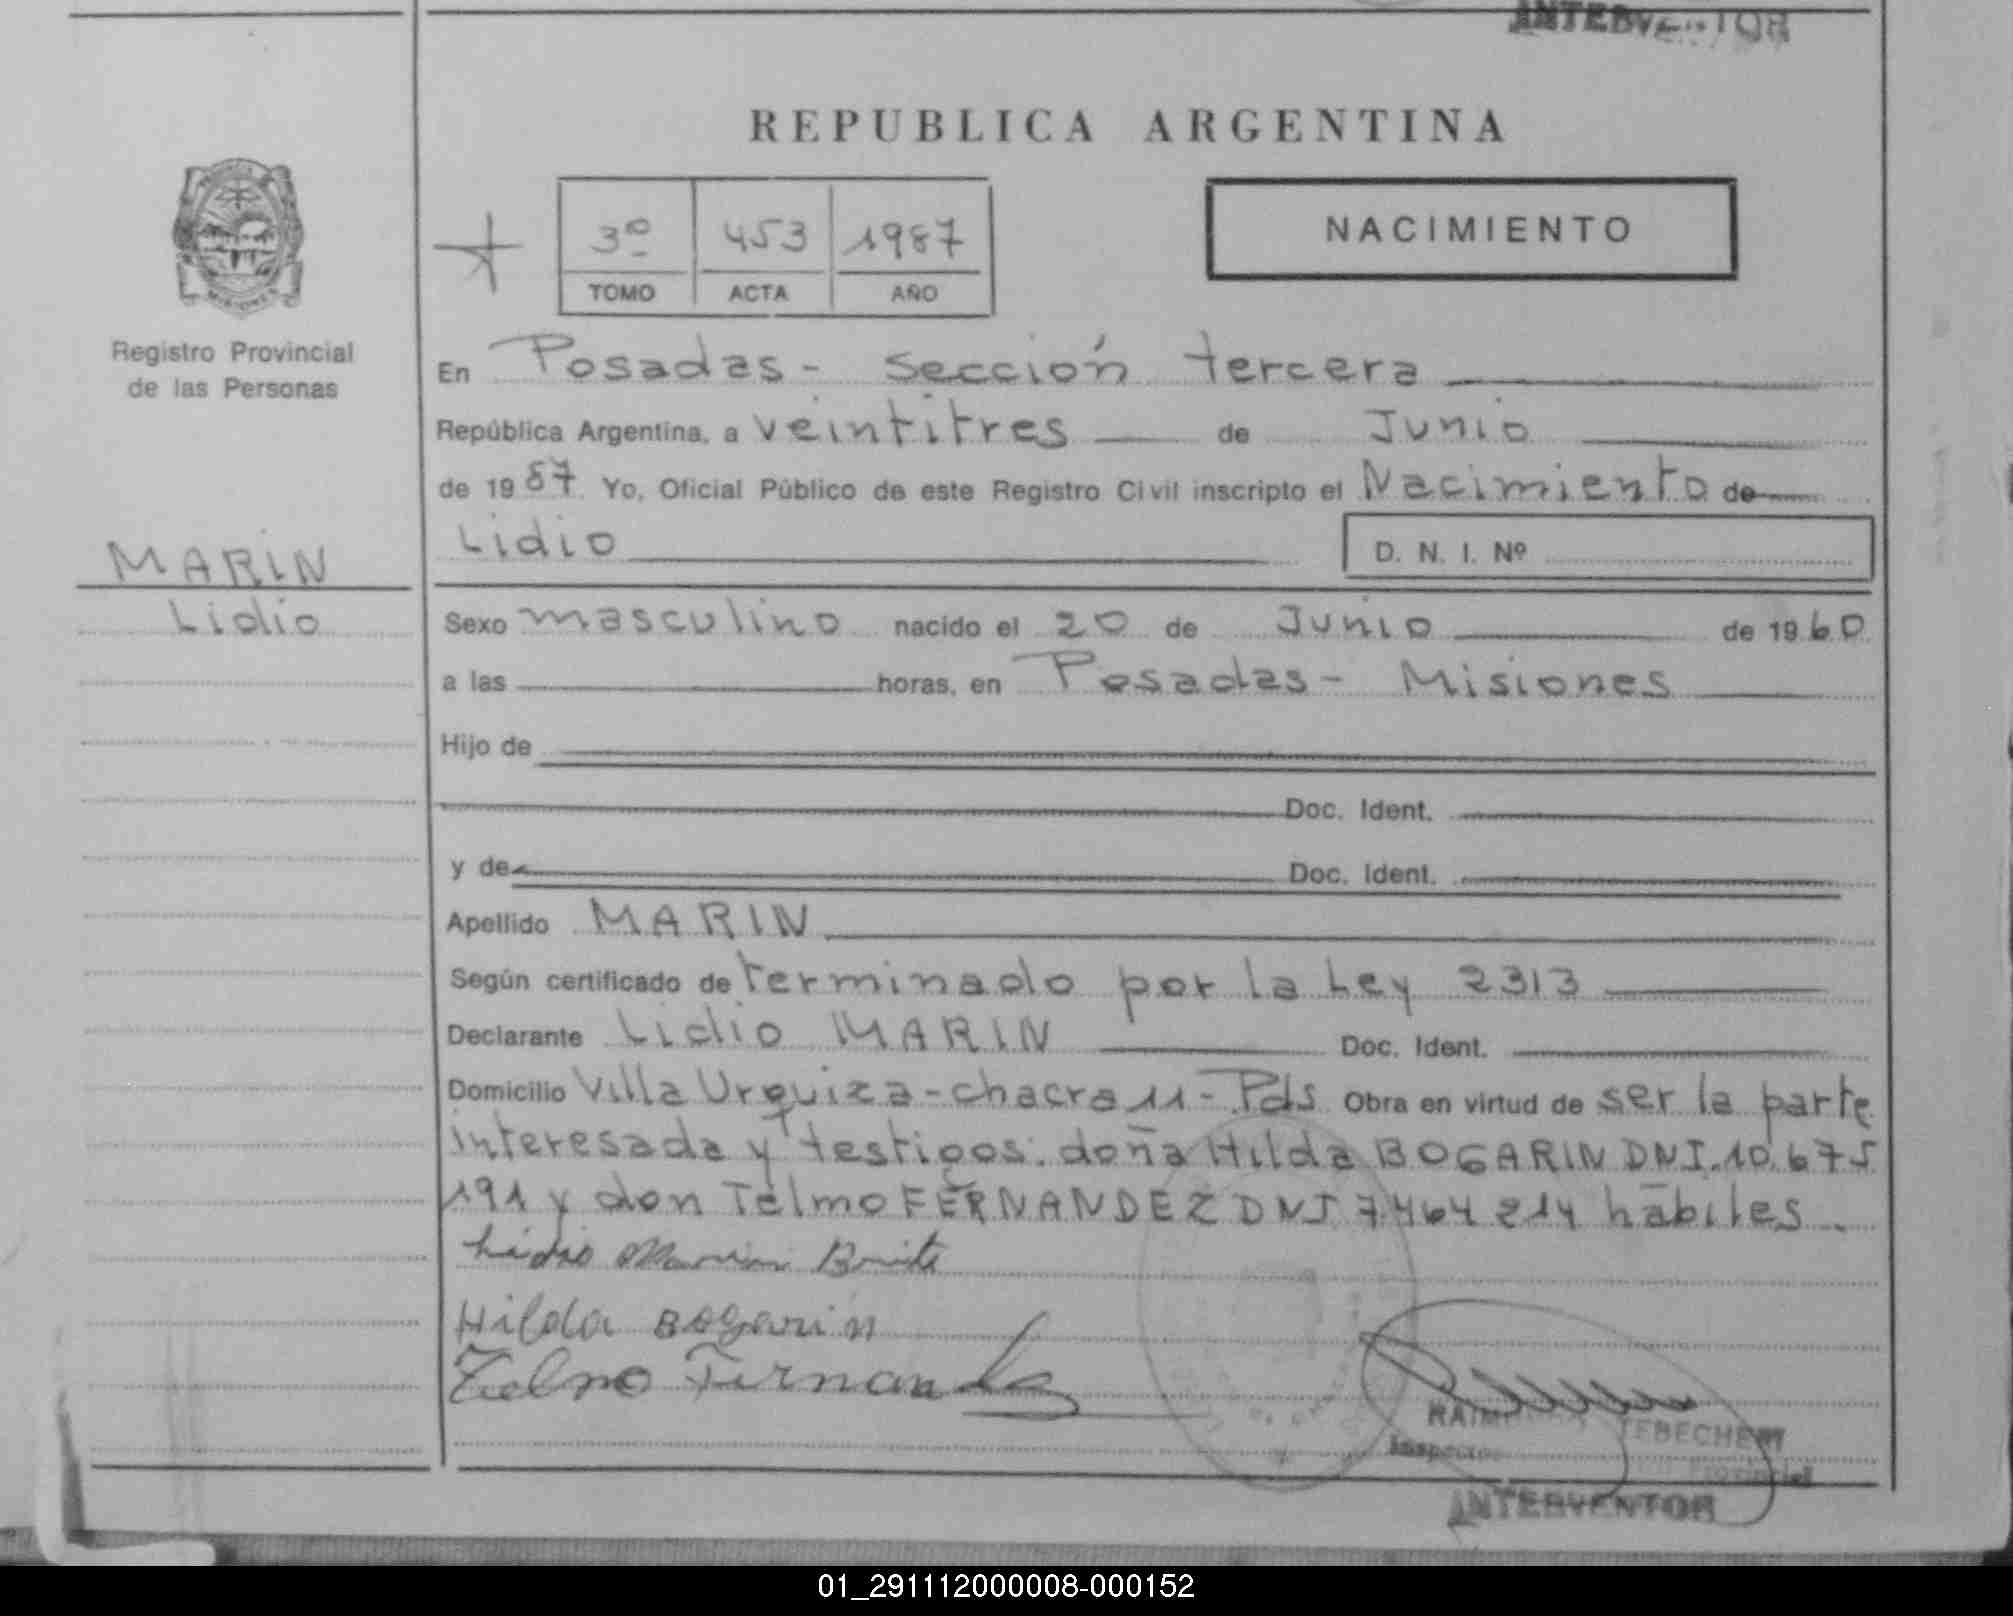 REPUBLICA ARGENTINA
3º 453 1987
TOMO ACTA AÑO
NACIMIENTO
MISIONES
Registro Provincial
de las Personas
MARIN
Lidio
En Posadas - sección tercera
República Argentina, a veintitres de Junio
de 1987 Yo, Oficial Público de este Registro Civil inscripto el Nacimiento de
Lidio D. N. I. Nº
Sexo masculino nacido el 20 de Junio de 1960
a las horas, en Posadas - Misiones
Hijo de
Doc. Ident.
y de Doc. Ident.
Apellido MARIN
Según certificado de terminado por la Ley 2313
Declarante Lidio MARIN Doc. Ident.
Domicilio Villa Urquiza - chacra 11 - Pds Obra en virtud de ser la parte
interesada y testigos: doña Hilda BOGARIN DNI. 10.675
191 y don Telmo FERNANDEZ DNI 7.464 214 hábiles.
Lidio Marin Brite
Hilda Bogarin
Telmo Fernandez
TEBECHERI
Inspector
Provincial
INTERVENTOR
01_291112000008-000152